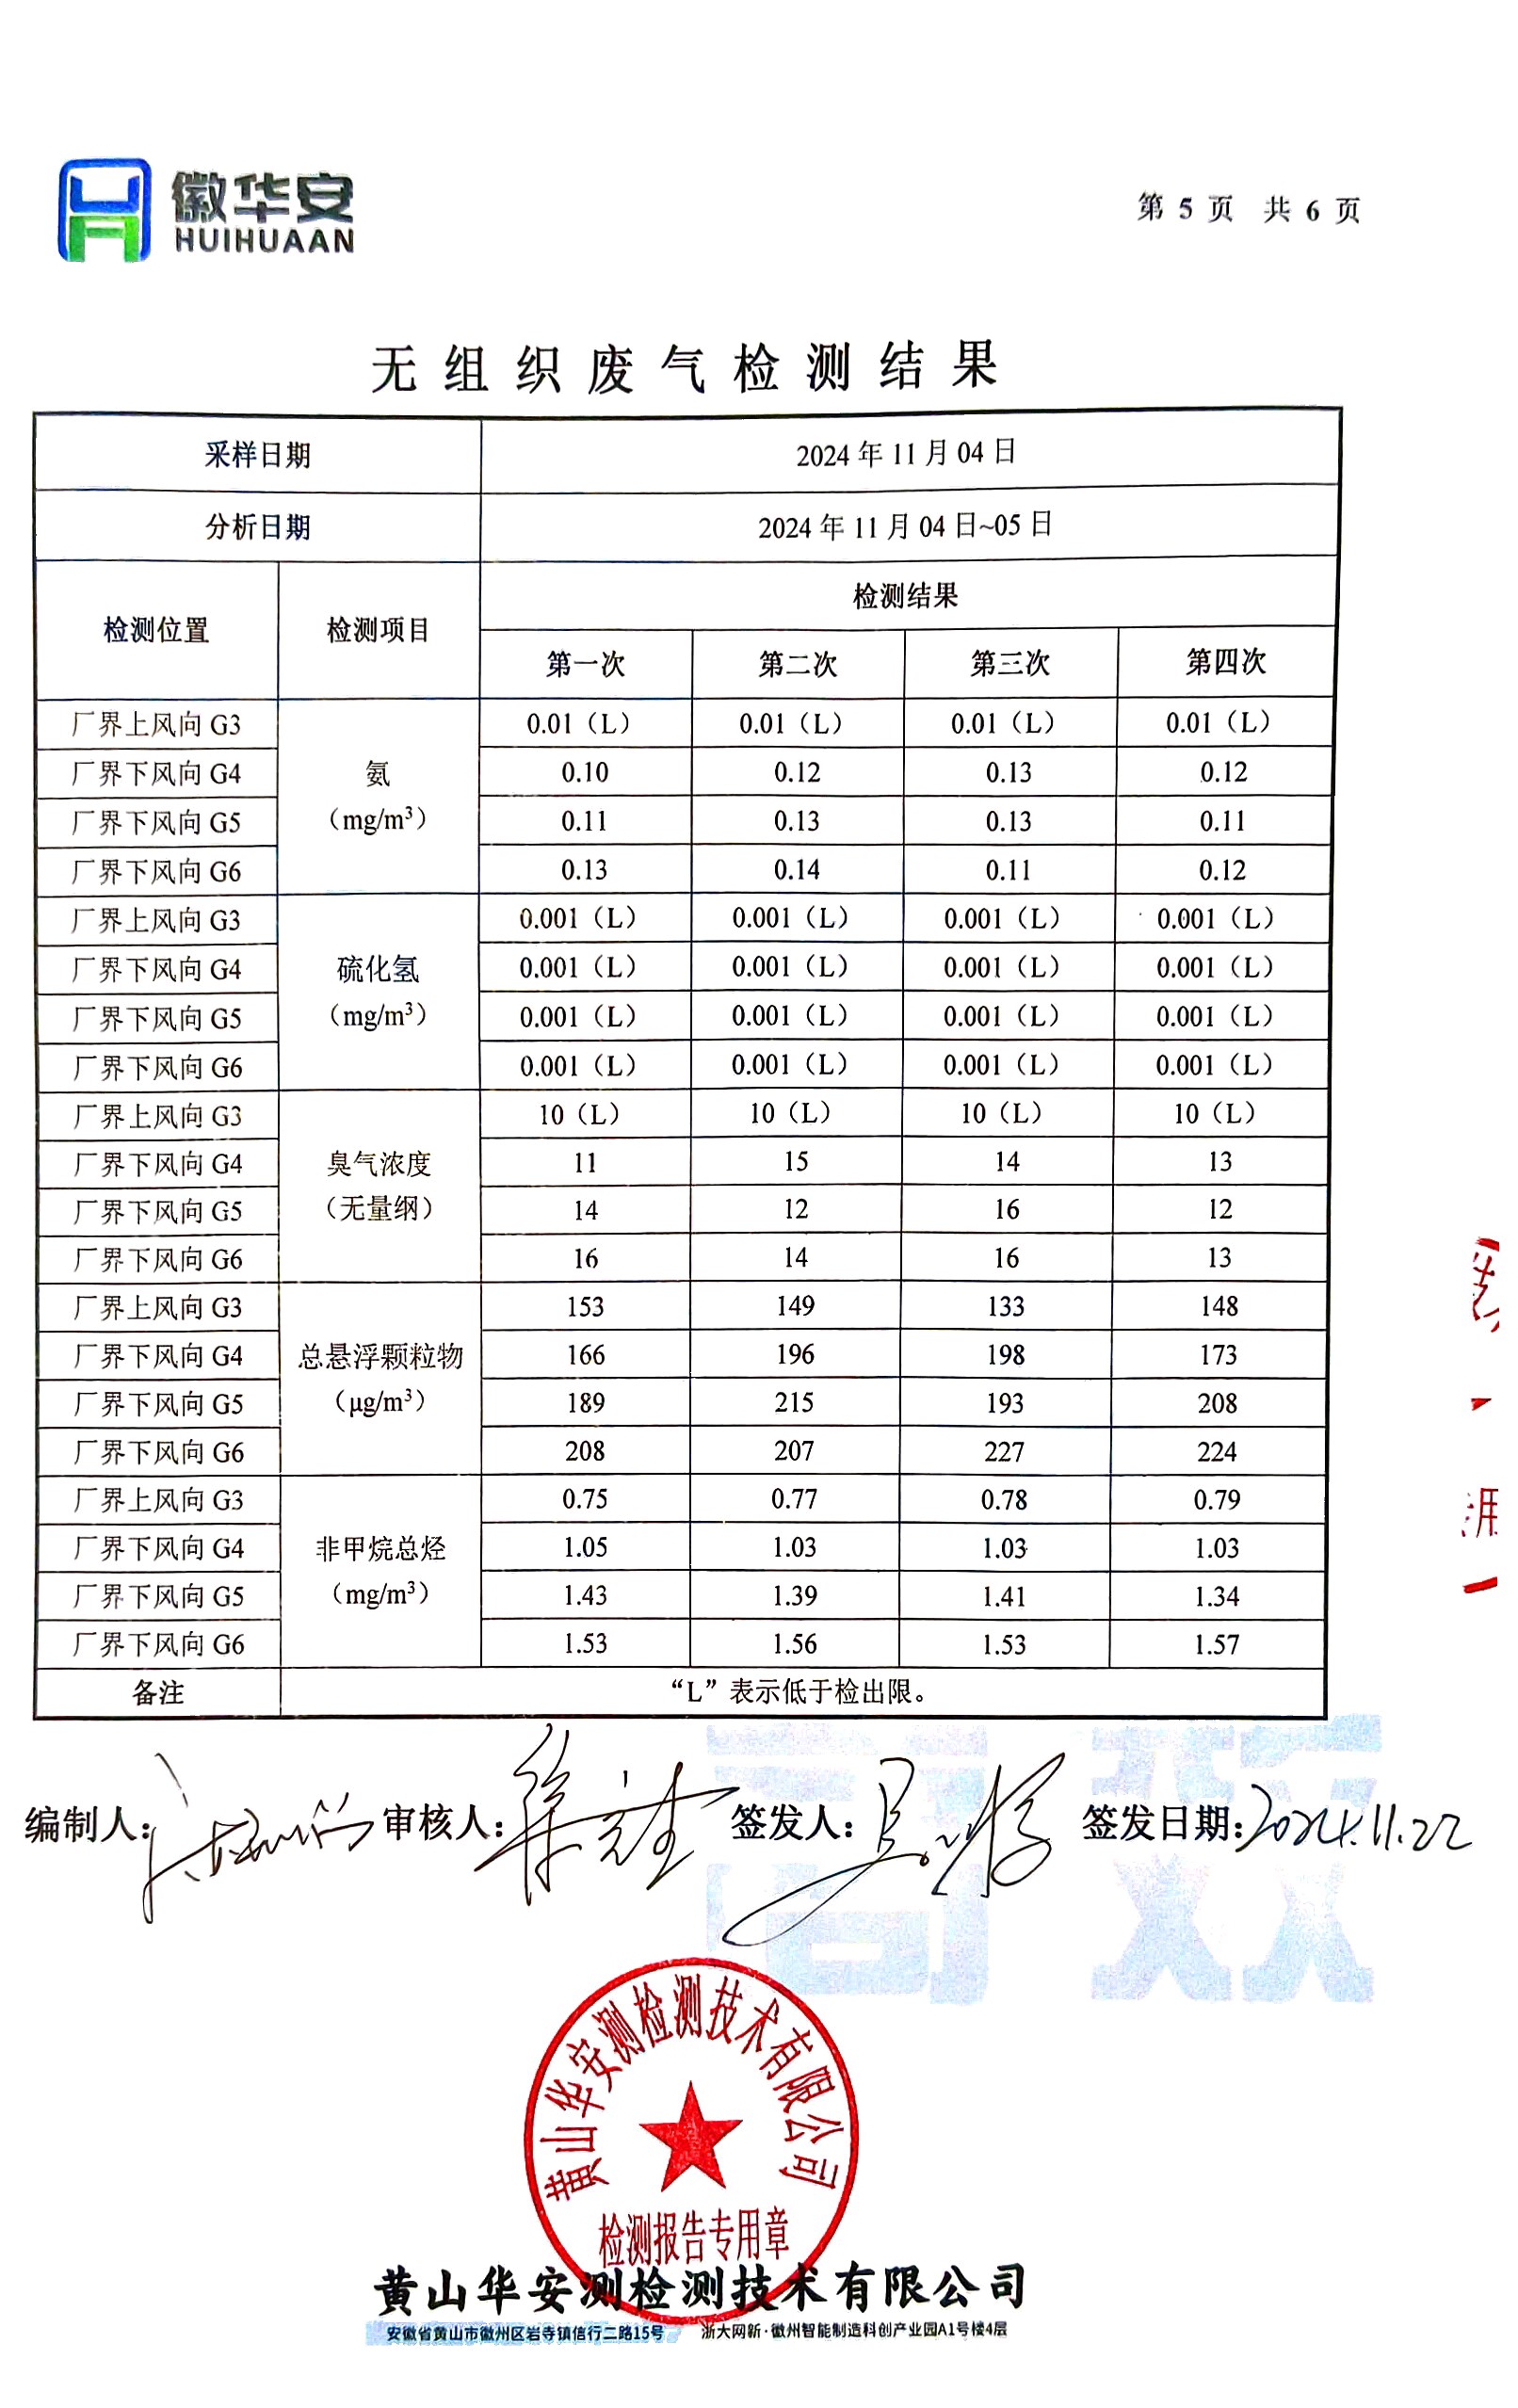 徽华安
HUIHUAAN
第 5 页 共 6 页
无组织废气检测结果
采样日期 2024 年 11 月 04 日
分析日期 2024 年 11 月 04 日~05 日
检测位置 检测项目 检测结果
第一次 第二次 第三次 第四次
厂界上风向 G3 氨（mg/m³） 0.01（L） 0.01（L） 0.01（L） 0.01（L）
厂界下风向 G4 0.10 0.12 0.13 0.12
厂界下风向 G5 0.11 0.13 0.13 0.11
厂界下风向 G6 0.13 0.14 0.11 0.12
厂界上风向 G3 硫化氢（mg/m³） 0.001（L） 0.001（L） 0.001（L） 0.001（L）
厂界下风向 G4 0.001（L） 0.001（L） 0.001（L） 0.001（L）
厂界下风向 G5 0.001（L） 0.001（L） 0.001（L） 0.001（L）
厂界下风向 G6 0.001（L） 0.001（L） 0.001（L） 0.001（L）
厂界上风向 G3 臭气浓度（无量纲） 10（L） 10（L） 10（L） 10（L）
厂界下风向 G4 11 15 14 13
厂界下风向 G5 14 12 16 12
厂界下风向 G6 16 14 16 13
厂界上风向 G3 总悬浮颗粒物（μg/m³） 153 149 133 148
厂界下风向 G4 166 196 198 173
厂界下风向 G5 189 215 193 208
厂界下风向 G6 208 207 227 224
厂界上风向 G3 非甲烷总烃（mg/m³） 0.75 0.77 0.78 0.79
厂界下风向 G4 1.05 1.03 1.03 1.03
厂界下风向 G5 1.43 1.39 1.41 1.34
厂界下风向 G6 1.53 1.56 1.53 1.57
备注 “L”表示低于检出限。
编制人: 审核人: 签发人: 签发日期:2024.11.22
黄山华安测检测技术有限公司
检测报告专用章
黄山华安测检测技术有限公司
安徽省黄山市徽州区岩寺镇信行二路15号 浙大网新·徽州智能制造科创产业园A1号楼4层